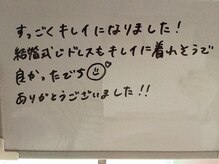 すっごくキレイになりました！
結婚式じドレスもキレイに着れそうで
良かったです
ありがとうございました!!